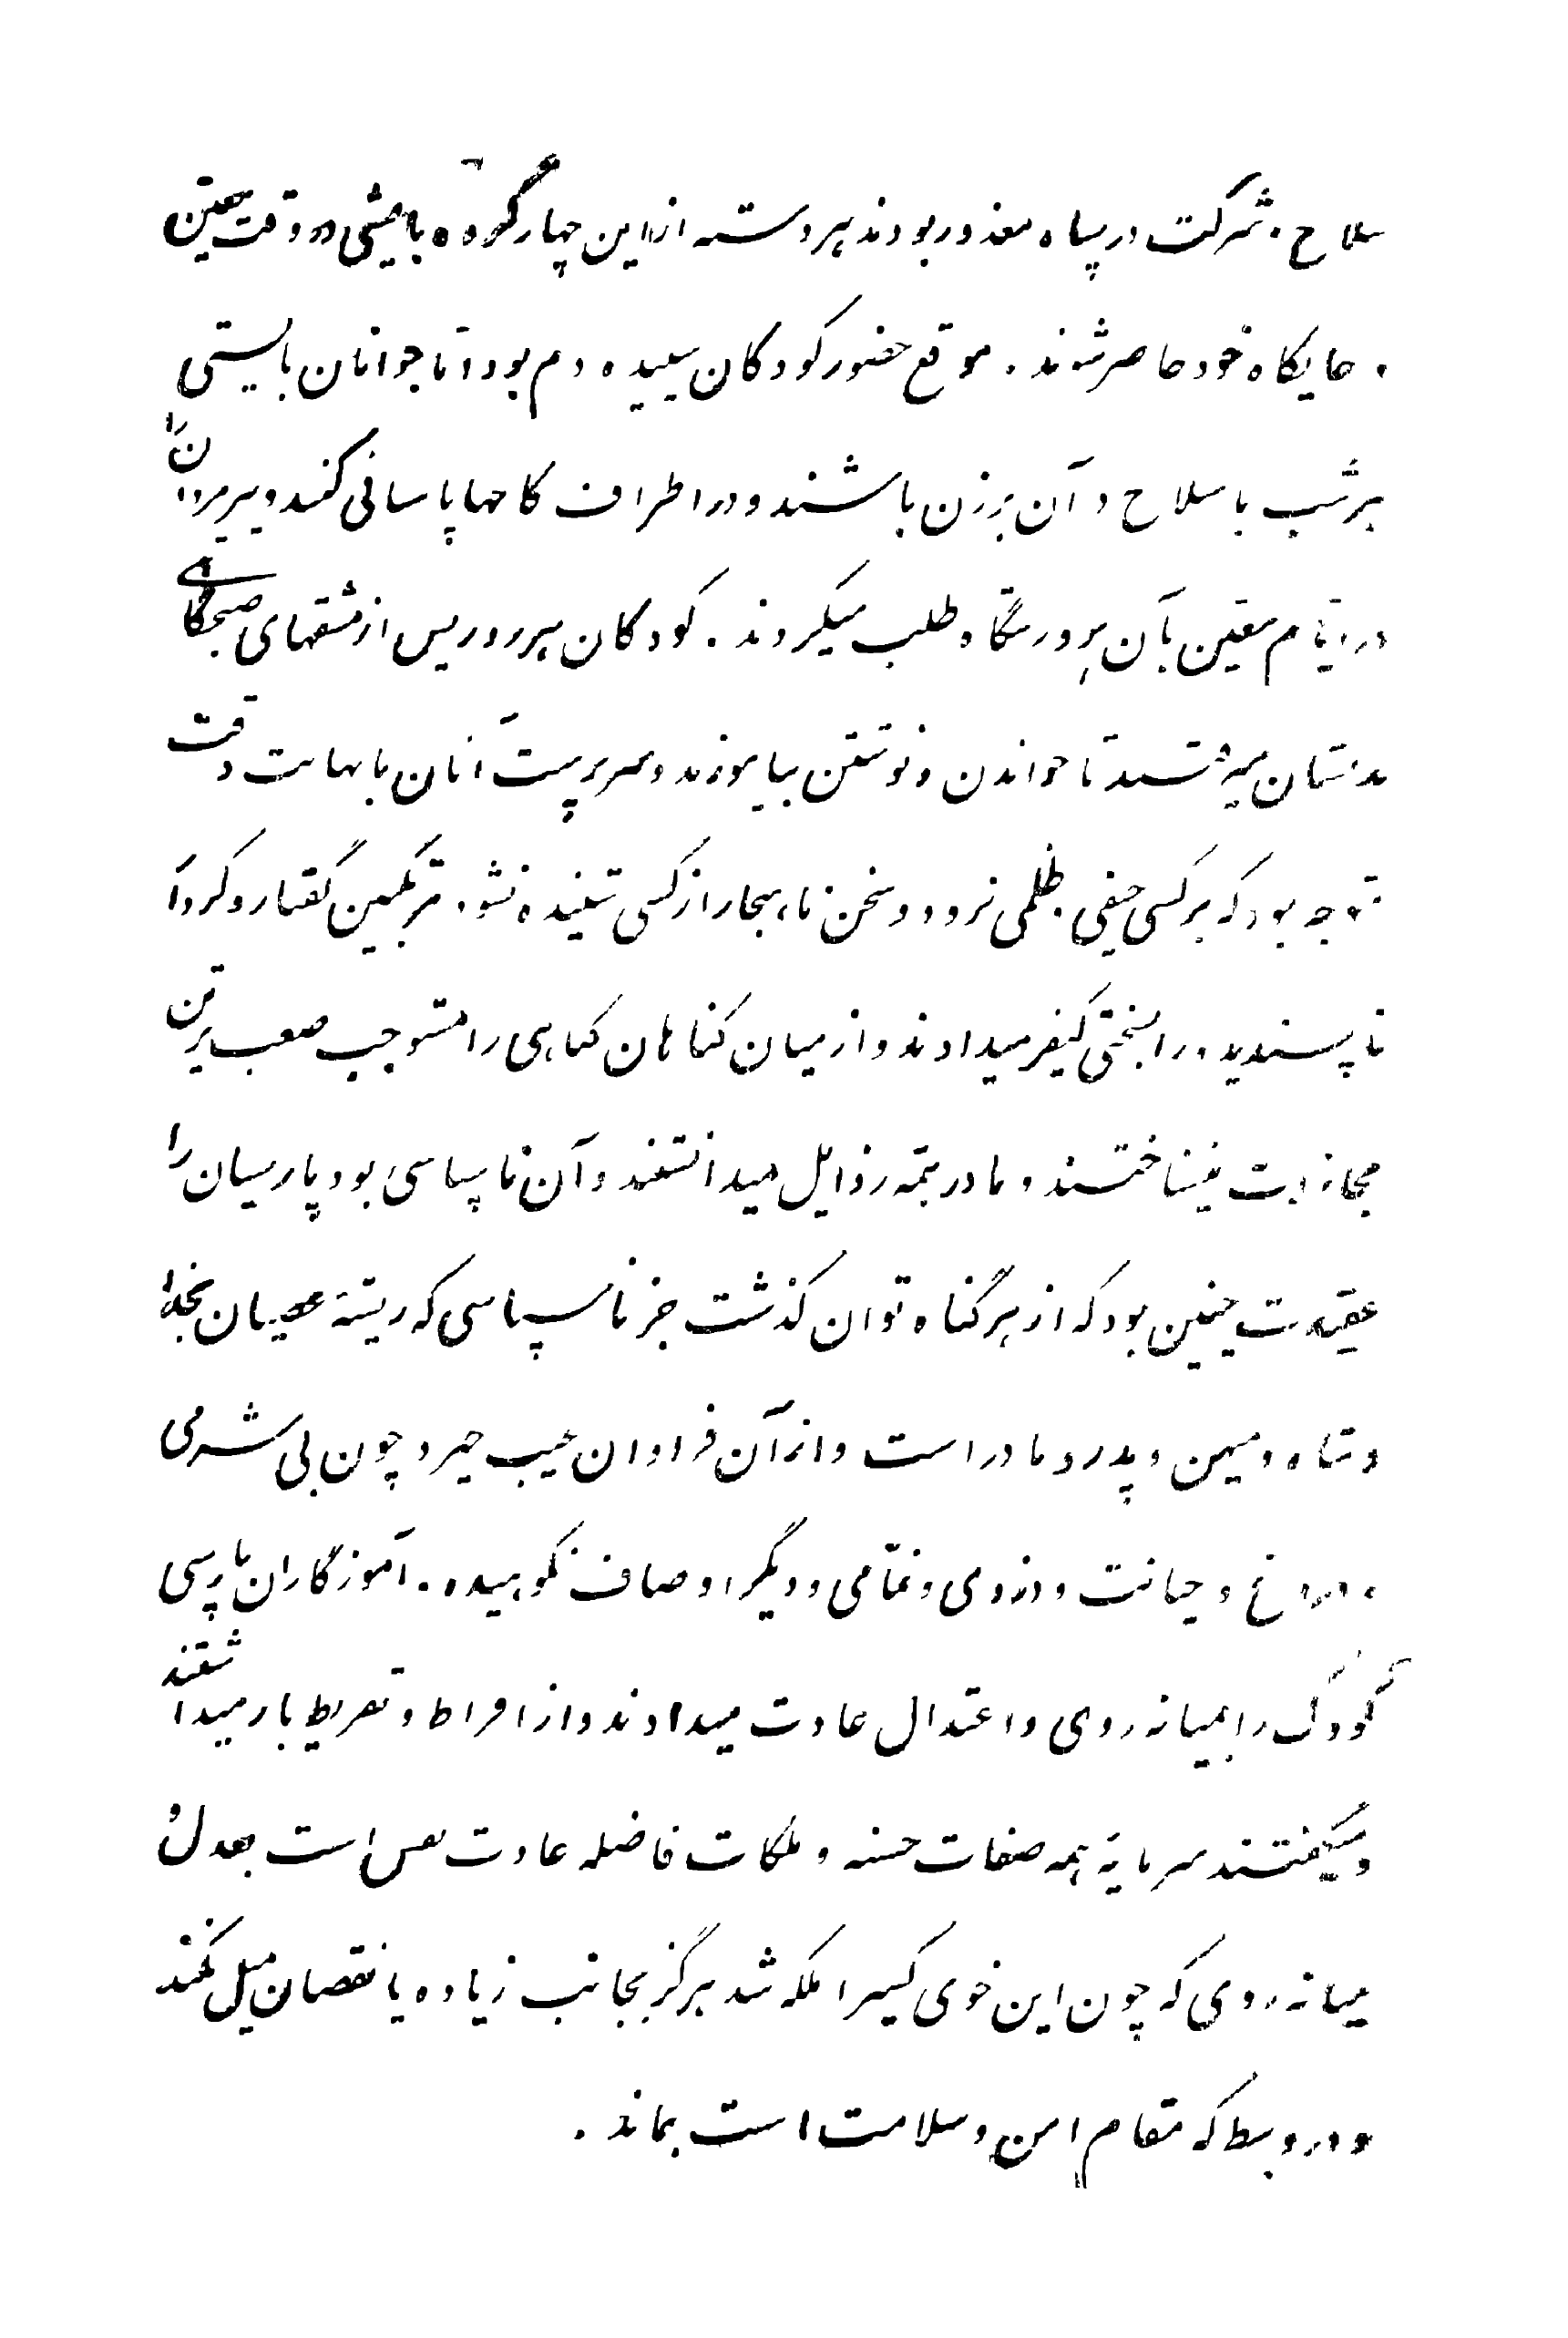 سلاح و شرکت در سپاه معذور بودند هر دسته از این چهار گروه بایستی در وقت معین
و جایگاه خود حاضر شوند. موقع حضور کودکان سپیده دم بود اما جوانان بایستی
هر شب با سلاح در آن برزن باشند و در اطراف کاخها پاسبانی کنند و پیرمردان را
در ایام معین بآن پرورشگاه طلب میکردند. کودکان هر روز پس از مشقهای صبحگاهی
بدبستان میرفتند تا خواندن و نوشتن بیاموزند و سرپرست آنان با نهایت دقت
متوجه بود که بر کسی حیفی و ظلمی نرود و سخن ناهنجار از کسی شنیده نشود. مرتکبین گفتار و کردار
ناپسندیده را بسختی کیفر میدادند و از میان گناهان گناهی را مستوجب صعب ترین
مجازات میشناختند و مادر همه رذایل میدانستند و آن ناسپاسی بود پارسیان را
عقیدت چنین بود که از هر گناه توان گذشت جز ناسپاسی که ریشهٔ عصیان بخدا
و شاه و میهن و پدر و مادر است و از آن فراوان عیب خیزد چون بی شرمی
و دروغ و خیانت و دزدی و نمّامی و دیگر اوصاف نکوهیده. آموزگاران پارسی
کودک را بمیانه روی و اعتدال عادت میدادند و از افراط و تفریط باز میداشتند
و میگفتند سرمایهٔ همه صفات حسنه و ملکات فاضله عادت نفس است بعدل و
میانه روی که چون این خوی کسیرا ملکه شد هرگز بجانب زیاده یا نقصان میل نکند
و در وسط که مقام امن و سلامت است بماند.